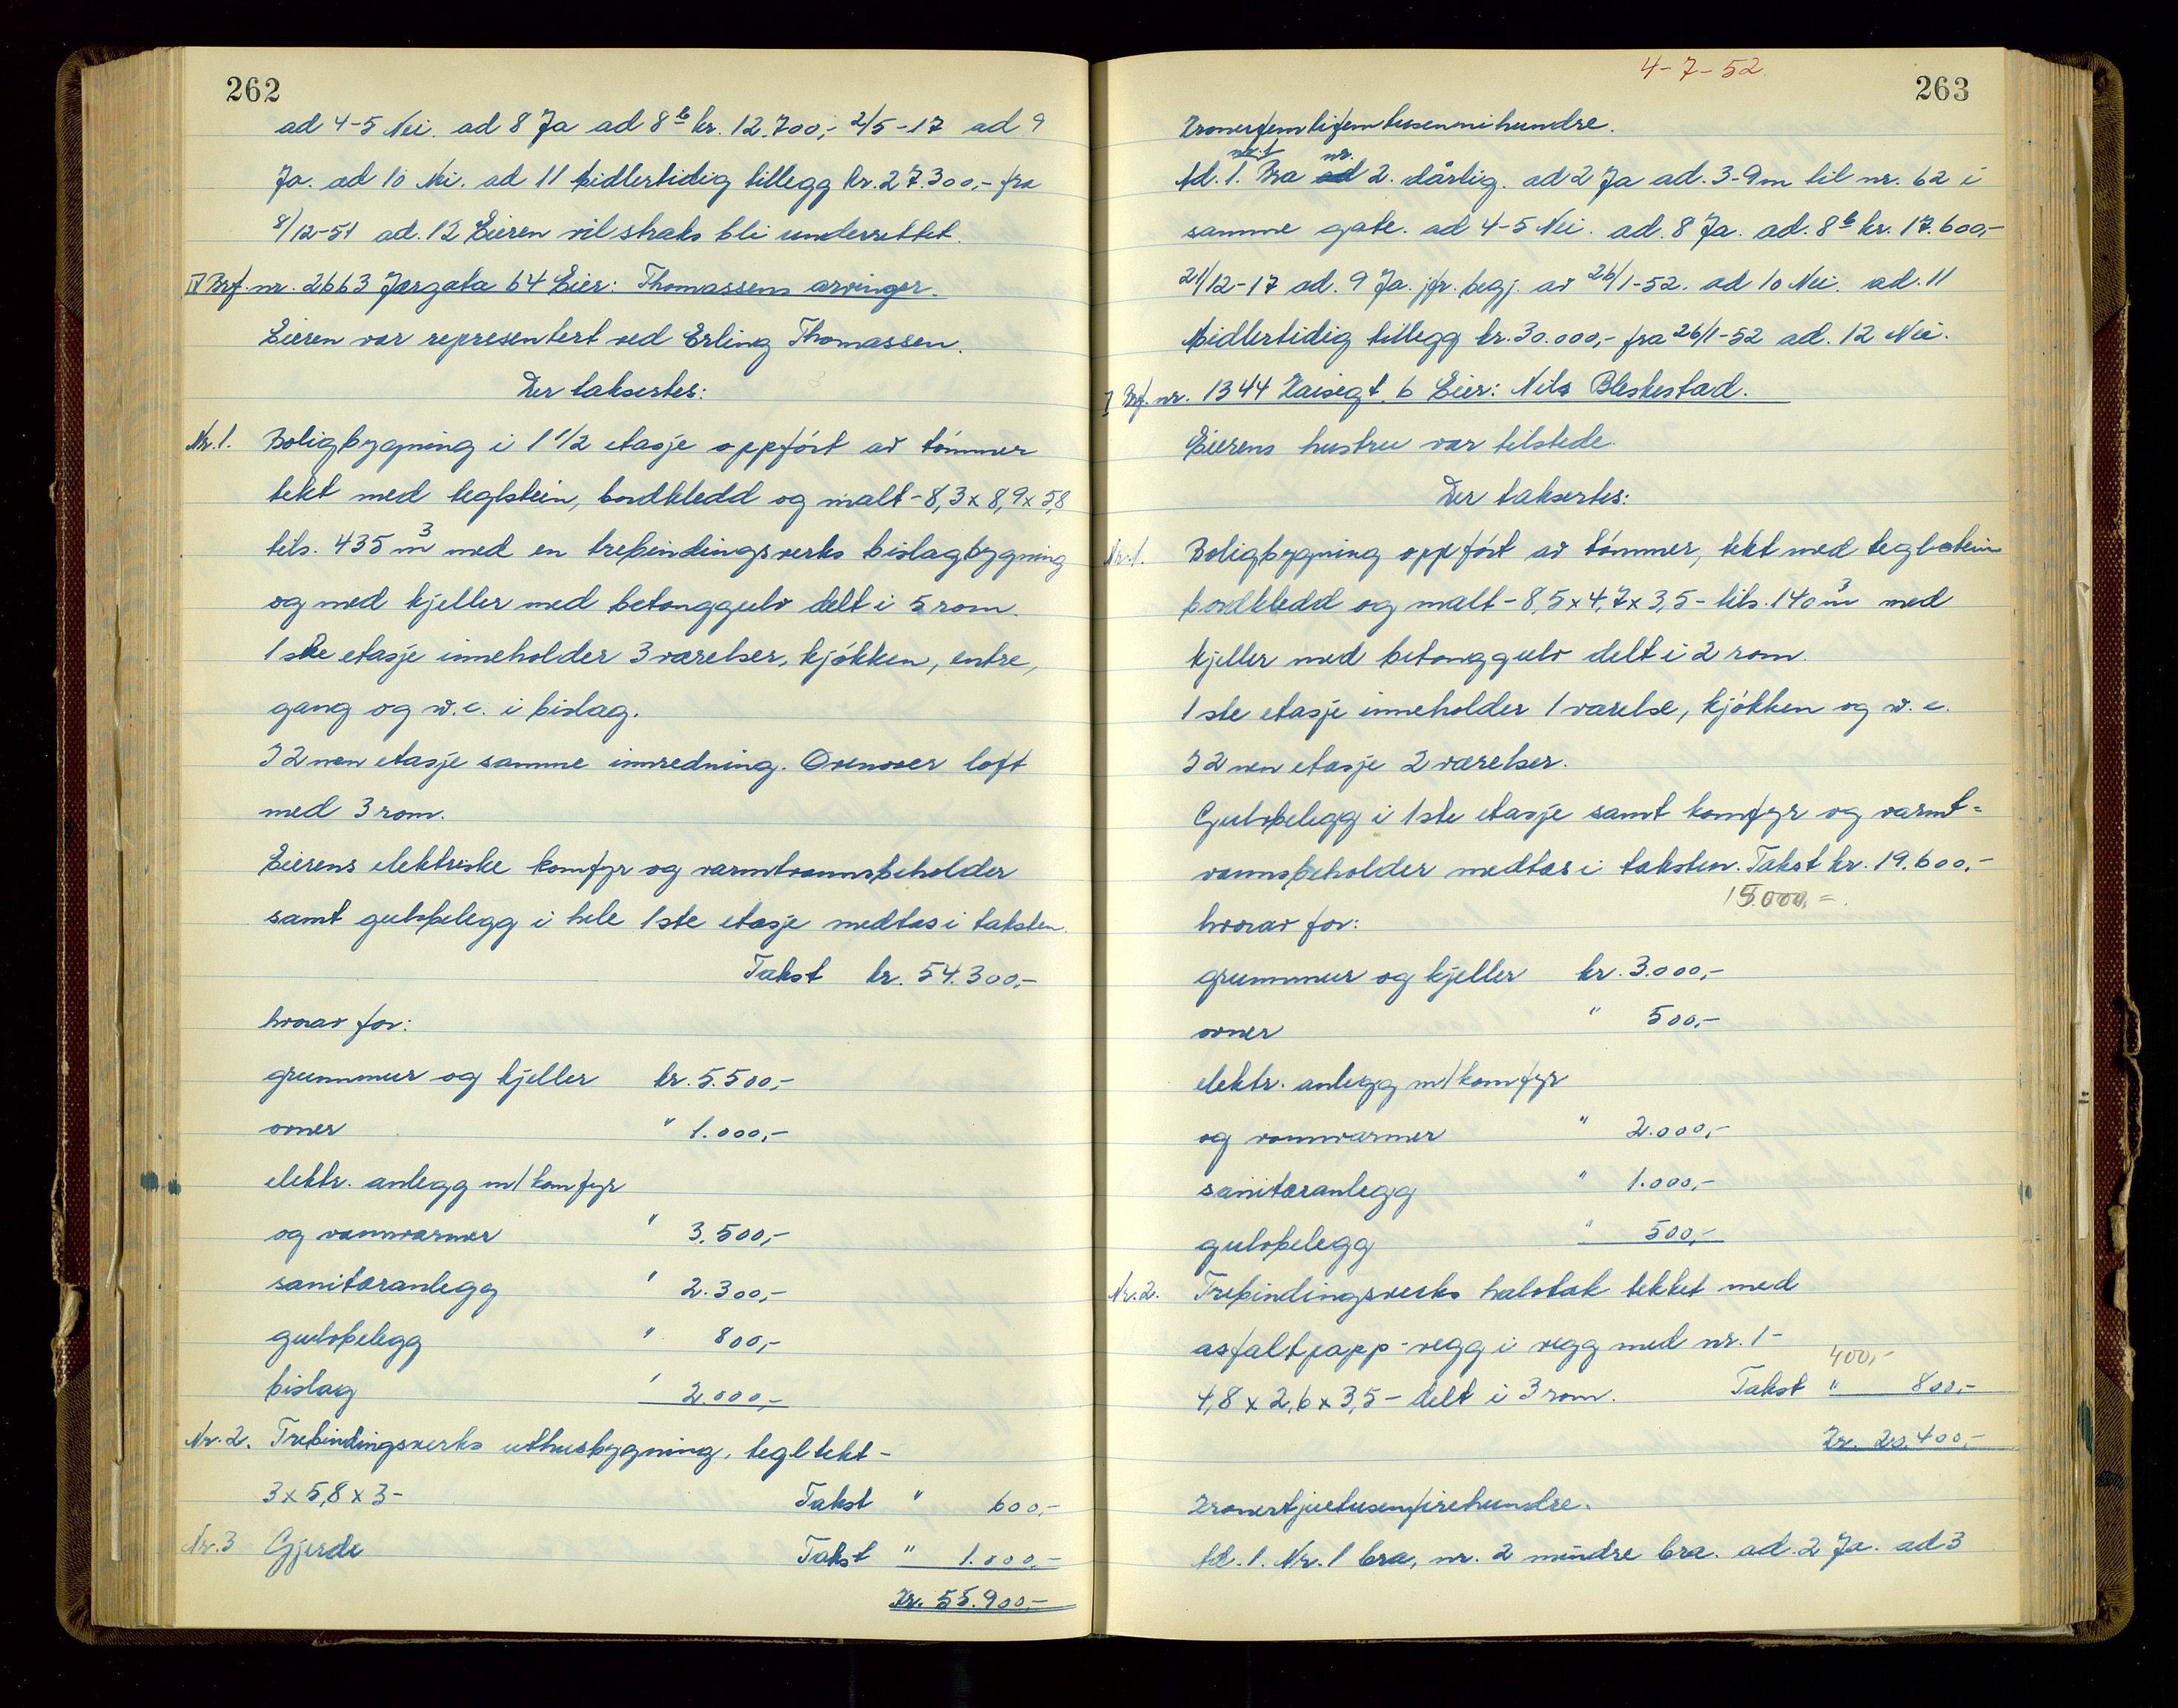 262
ad 4-5 Nei. ad 8 Ja ad 8b kr. 12.700,- 2/5-17 ad 9
Ja. ad 10 Nei. ad 11 Midlertidig tillegg kr. 27.300,- fra
8/12-51 ad. 12 Eieren vil straks bli underrettet.
IV Brf. nr. 2663 Jørgata 64 Eier: Thomassens arvinger.
Eieren var representert ved Erling Thomassen.
Der taksertes:
Nr. 1. Boligbygning i 1 1/2 etasje oppført av tømmer
tekt med teglstein, bordkledd og malt - 8,3 x 8,9 x 5,8
tils. 435 m3 med en trebindingsverks bislagbygning
og med kjeller med betonggulv delt i 5 rom.
1ste etasje inneholder 3 værelser, kjøkken, entre,
gang og w.c. i bislag.
I 2nen etasje samme innredning. Ovenover loft
med 3 rom.
Eierens elektriske komfyr og varmtvannsbeholder
samt gulvbelegg i hele 1ste etasje medtas i taksten.
Takst kr. 54.300,-
hvorav for:
grunnmur og kjeller kr. 5.500,-
ovner " 1.000,-
elektr. anlegg m/komfyr
og vannvarmer " 3.500,-
sanitæranlegg " 2.300,-
gulvbelegg " 800,-
bislag " 2.000,-
Nr. 2. Trebindingsverks uthusbygning, tegltekt -
3 x 5,8 x 3 - Takst " 600,-
Nr. 3 Gjerde Takst " 1.000,-
Kr. 55.900,-
4-7-52.
263
Kronerfemtifemtusennihundre.
nr. 1 nr.
Ad. 1. Bra ad 2. dårlig. ad 2 Ja ad. 3-9m til nr. 62 i
samme gate. ad 4-5 Nei. ad. 8 Ja. ad. 8b kr. 17.600,-
21/12-17 ad. 9 Ja. jfr. begj. av 26/1-52. ad 10 Nei. ad. 11
Midlertidig tillegg kr. 30.000,- fra 26/1-52 ad. 12 Nei.
I Brf. nr. 1344 Kaisegt. 6 Eier: Nils Bleskestad.
Eierens hustru var tilstede.
Der taksertes:
Nr. 1. Boligbygning oppført av tømmer, tekt med teglstein
bordkledd og malt - 8,5 x 4,7 x 3,5 - tils. 140 m3 med
kjeller med betonggulv delt i 2 rom.
1ste etasje inneholder 1 værelse, kjøkken og w.c.
I 2nen etasje 2 værelser.
Gulvbelegg i 1ste etasje samt komfyr og varmt-
vannsbeholder medtas i taksten. Takst kr. 19.600,-
15.000,=.
hvorav for:
grunnmur og kjeller kr. 3.000,-
ovner " 500,-
elektr. anlegg m/komfyr
og vannvarmer " 2.000,-
sanitæranlegg " 1.000,-
gulvbelegg " 500,-
Nr. 2. Trebindingsverks halvtak tekket med
asfaltpapp - vegg i vegg med nr. 1 -
400,-
4,8 x 2,6 x 3,5 - delt i 3 rom. Takst " 800,-
Kr. 20.400,-
Kronertjuetusenfirehundre.
Ad. 1. Nr. 1 bra, nr. 2 mindre bra. ad. 2 Ja. ad 3